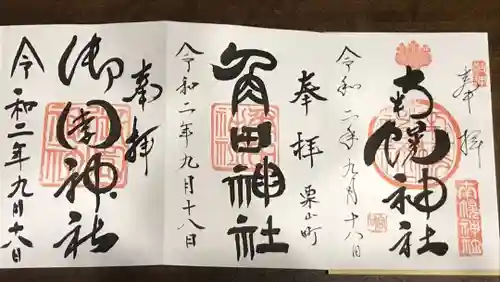 奉拝
南幌神社
令和二年九月十八日
南幌神社
奉拝
栗山町
角田神社
令和二年九月十八日
奉拝
御園神社
令和二年九月十八日